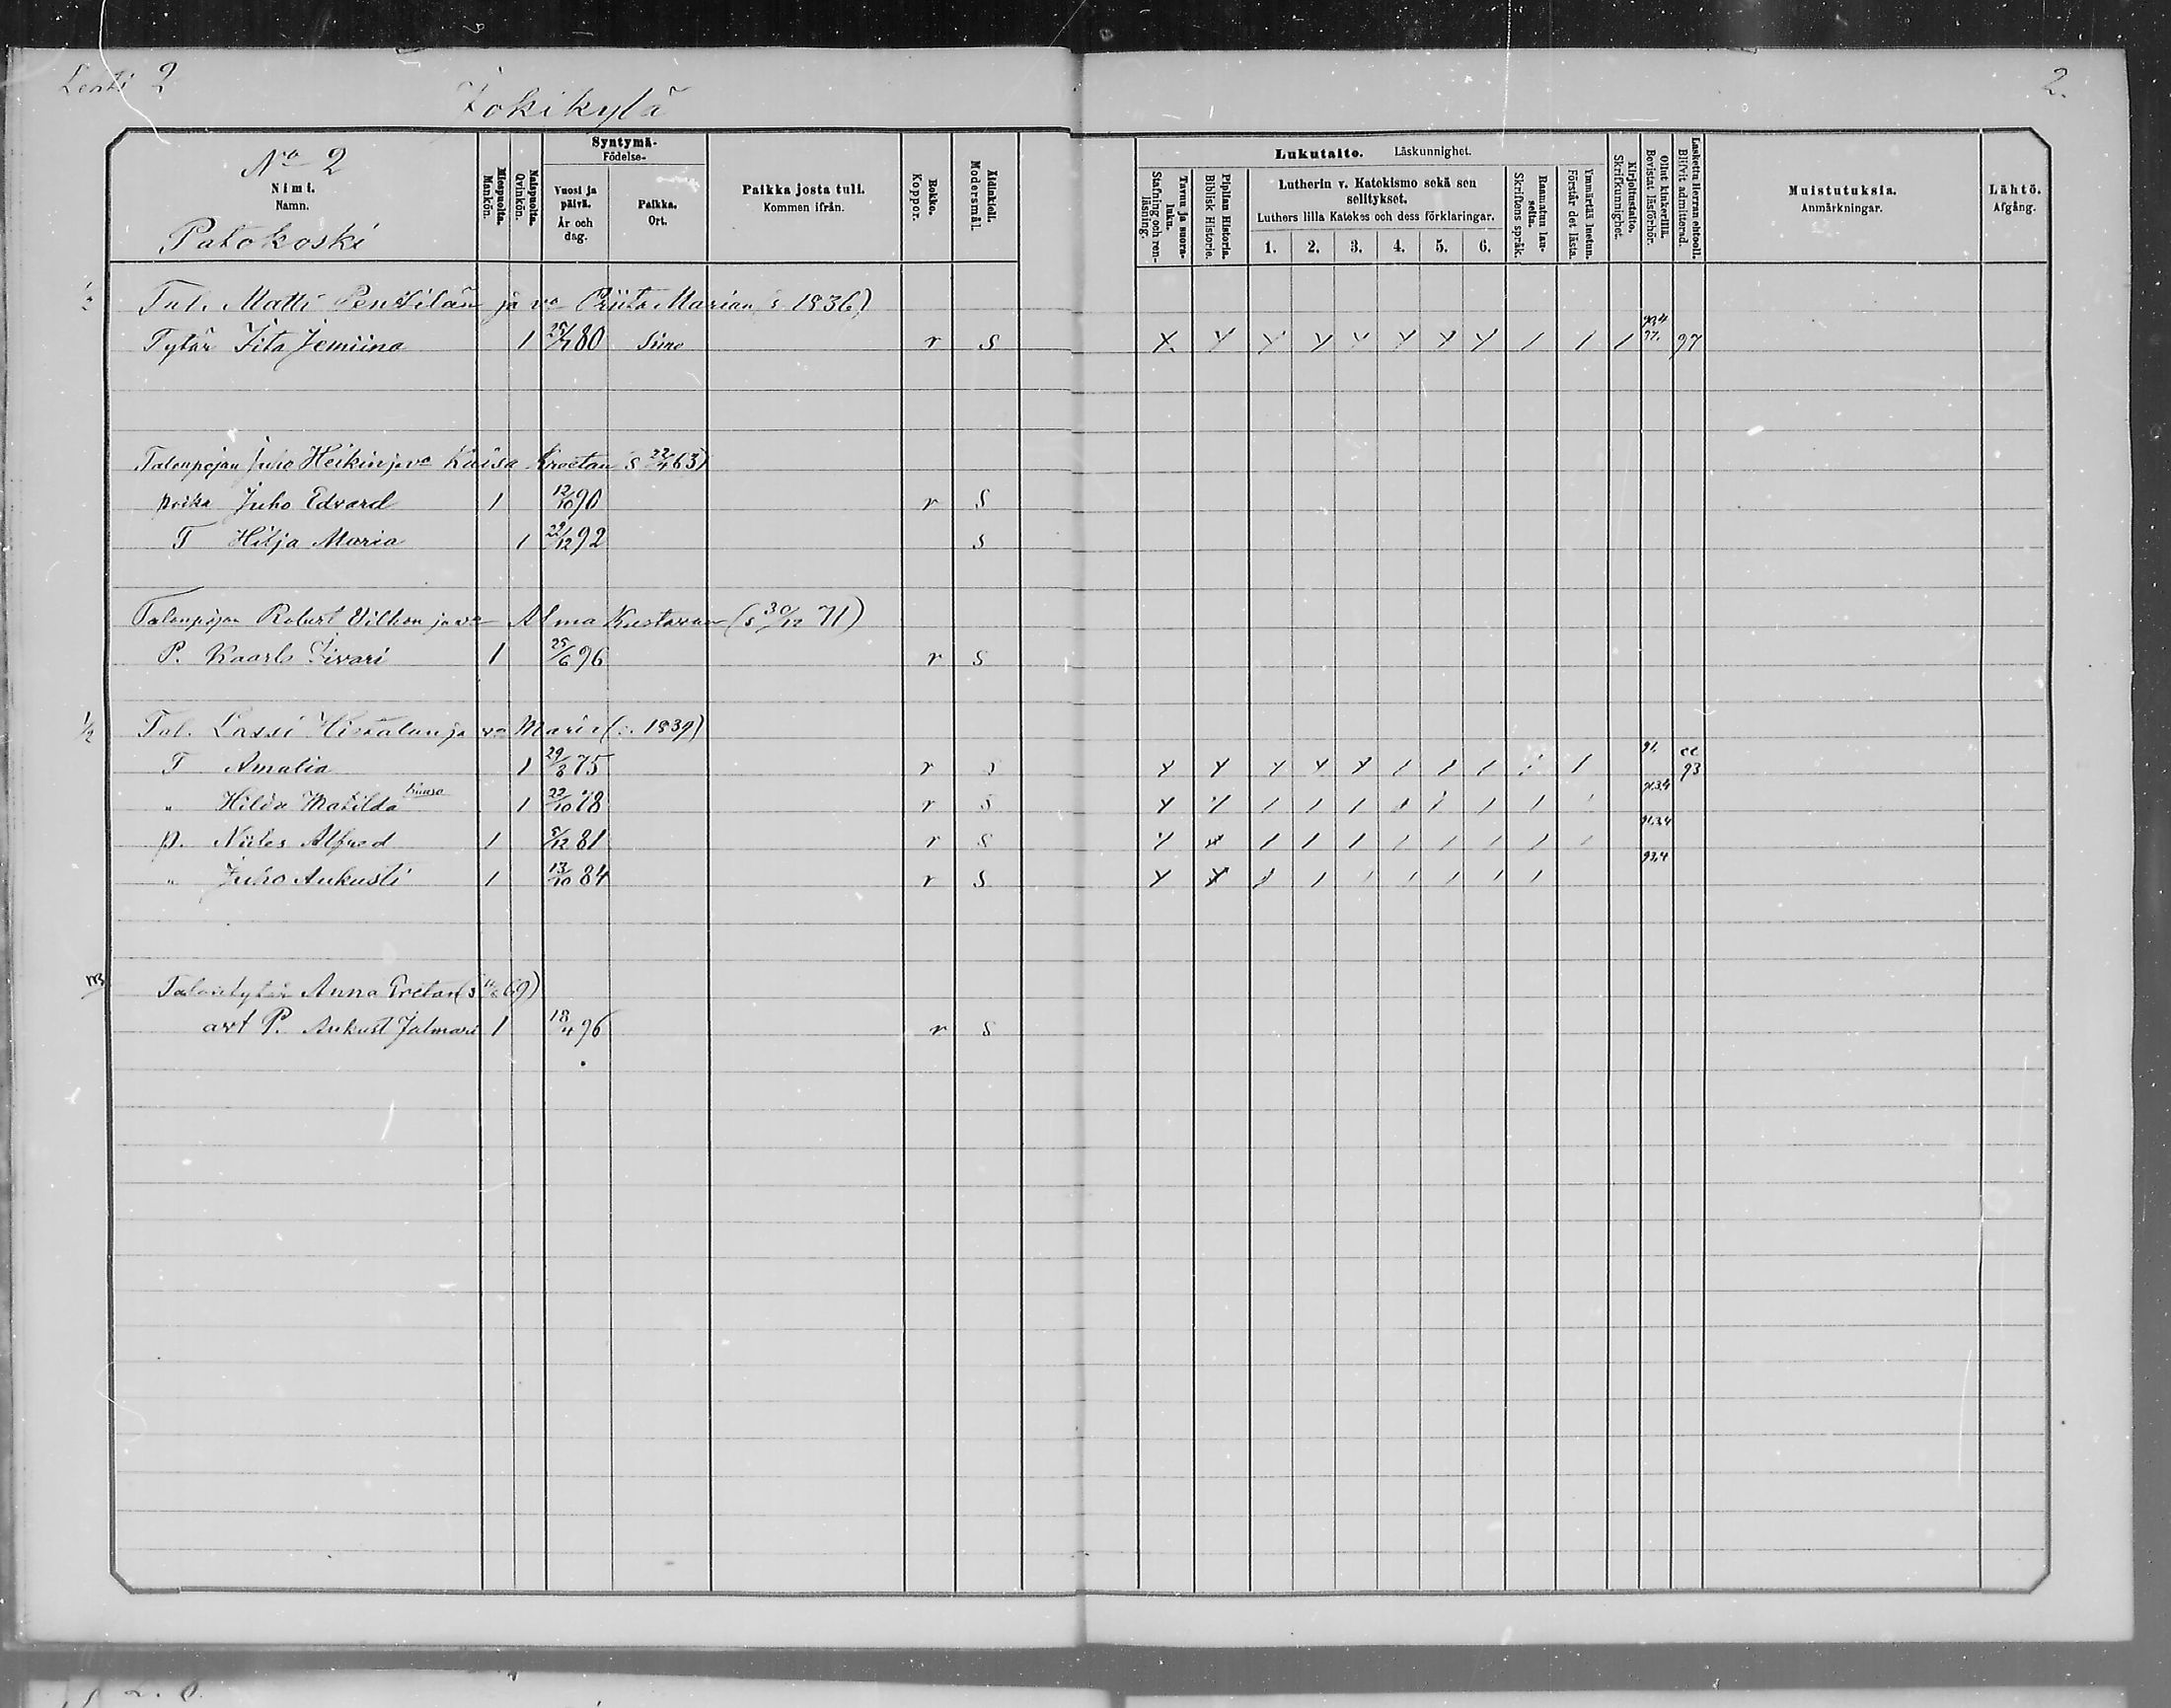 Lehti 2
Jokikylä
2.
No 2
Nimi.
Namn.
Patokoski
Miespuolta.
Mankön.
Naispuolta.
Qvinkön.
Syntymä-
Födelse-
Vuosi ja päivä.
År och dag.
Paikka.
Ort.
Paikka josta tuli.
Kommen ifrån.
Rokko.
Koppor.
Äidinkieli.
Modersmål.
Lukutaito. Läskunnighet.
Tavuu ja suora-luku.
Stafning och ren-läsning.
Piplian Historia.
Biblisk Historie.
Lutherin v. Katekismo sekä sen selitykset.
Luthers lilla Katekes och dess förklaringar.
1. 2. 3. 4. 5. 6.
Raamatun lauseita.
Skriftens språk.
Ymmärtää luetun.
Förstår det lästa.
Kirjoitustaito.
Skrifkunnighet.
Ollut kinkerillä.
Bevistat läsförhör.
Laskettu Herran ehtooll.
Blifvit admitterad.
Muistutuksia.
Anmärkningar.
Lähtö.
Afgång.
Tal. Matti Penttilän ja vo Priita Marian s 1836)
Tytär Iita Jemiina 1 80 Simo r S 97
Talonpojan Juho Heikin ja vo Kaisa Kreetan s 22/4 63)
poika Juho Edvard 1 12/10 90 r S
T Hilja Maria 1 22/12 92 S
Talonpojan Robert Vilhon ja vo Alma Kustavan (s 30/12 71)
P. Kaarlo Iivari 1 25/6 96 r S
1/2 Tal. Lassi Hietalan ja vo Maria (s. 1839)
T Amalia 1 29/8 75 r S 91. 93
" Hilda Matilda 1 22/10 78 r S
p. Niiles Alfred 1 5/12 81 r S
" Juho Aukusti 1 13/10 84 r S 93,4
Talontytär Anna Gretan (s 69)
avt P. Aukust Jalmari 1 18/4 96 r S